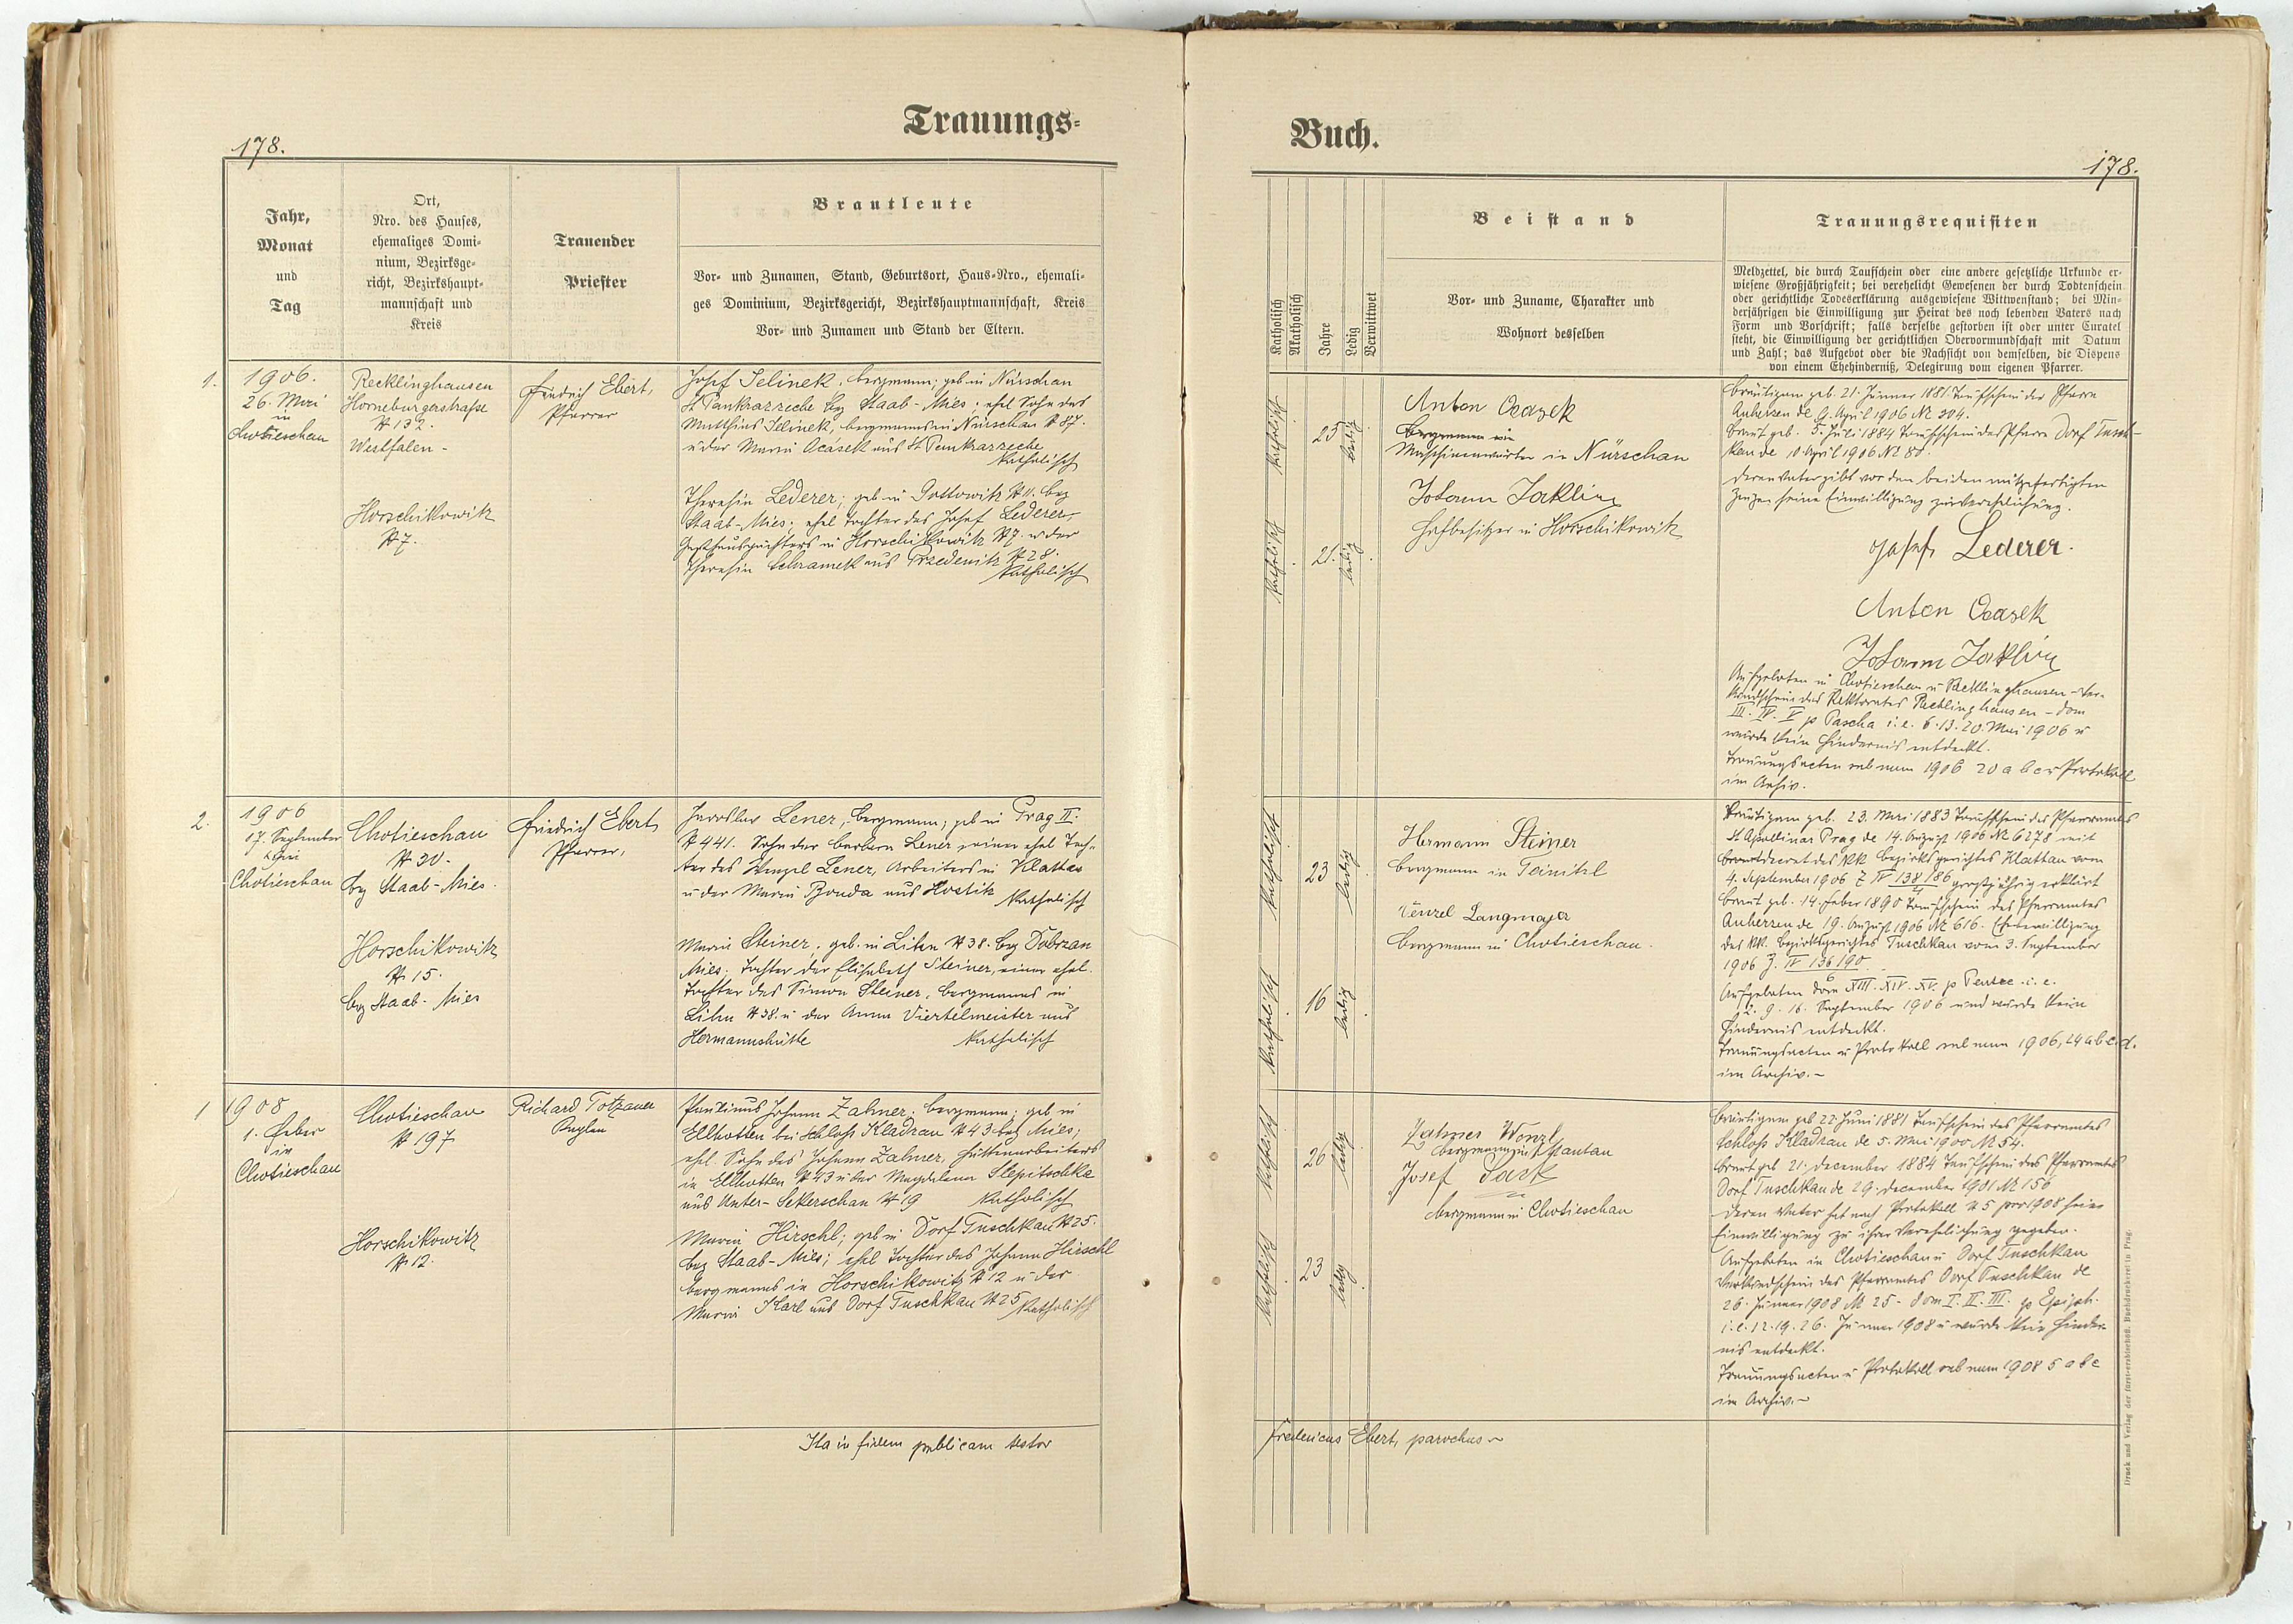 Trauungs-
178.
Jahr,
Monat
und
Tag
Ort,
Nro. des Hauses,
ehemaliges Domi-
nium, Bezirksge-
richt, Bezirkshaupt-
mannschaft und
Kreis
Trauender
Priester
Brautleute
Vor- und Zunamen, Stand, Geburtsort, Haus-Nro., ehemali-
ges Dominium, Bezirksgericht, Bezirkshauptmannschaft, Kreis
Vor- und Zunamen und Stand der Eltern.
1.
1906.
26. Mai
in
Chotieschau
Recklinghausen
Horneburgerstraße
N 132.
Westfalen -
Horschikowitz
N 7.
Friedrich Ebert,
Pfarrer
Josef Jelinek, Bergmann; geb in Nürschan
St Pankrazzeche Bez Staab-Mies; ehel Sohn des
Matthias Jelinek, Bergmanns in Nürschan N 87.
u der Maria Ocásek aus St Pankrazzeche
Katholisch
Theresia Lederer; geb in Gottowitz N 11. Bez
Staab-Mies; ehel Tochter des Josef Lederer,
Gasthauspächters in Horschikowitz N 7. u der
Theresia Schramek aus Przedenitz N 28.
Katholisch
2.
1906
17. September
Chotieschau
Chotieschau
N 20.
Bez Staab-Mies.
Horschikowitz
N 15.
Bez Staab-Mies
Friedrich Ebert
Pfarrer,
Jaroslav Lener, Bergmann; geb in Prag II.
N 441. Sohn der Barbara Lener, einer ehel Toch-
ter des Wenzel Lener, Arbeiters in Klattau
u der Maria Bonda aus Hostitz
Katholisch
Maria Steiner, geb. in Lihn N 38. Bez Dobrzan
Mies; Tochter der Elisabeth Steiner, einer ehel.
Tochter des Simon Steiner, Bergmanns in
Lihn N 38. u der Anna Viertelmeister aus
Hermannshütte
Katholisch
1
1908
1. Feber
in
Chotieschau
Chotieschau
N 197
Horschikowitz
N 12.
Richard Totzauer
Kaplan
Paulinus Johann Zahner, Bergmann; geb in
Ellhotten bei Schloß Kladrau N 43 Bez Mies;
ehel. Sohn des Johann Zahner, Hüttenarbeiters
in Ellhotten N 43 u der Magdalena Slepitschka
aus Unter-Sekerschan N 9
Katholisch
Maria Hirschl; geb in Dorf Tuschkau N 25.
Bez Staab-Mies; ehel Tochter des Johann Hirschl
Bergmanns in Horschikowitz N 12 u der
Maria Karl aus Dorf Tuschkau N 25
Katholisch
Ita in fidem publicam testor
Buch.
178.
Katholisch
Akatholisch
Jahre
Ledig
Verwittwet
Beistand
Vor- und Zuname, Charakter und
Wohnort desselben
Trauungsrequisiten
Meldzettel, die durch Taufschein oder eine andere gesetzliche Urkunde er-
wiesene Großjährigkeit; bei verehelicht Gewesenen der durch Todtenschein
oder gerichtliche Todeserklärung ausgewiesene Wittwenstand; bei Min-
derjährigen die Einwilligung zur Heirat des noch lebenden Vaters nach
Form und Vorschrift; falls derselbe gestorben ist oder unter Curatel
steht, die Einwilligung der gerichtlichen Obervormundschaft mit Datum
und Zahl; das Aufgebot oder die Nachsicht von demselben, die Dispens
von einem Ehehinderniß, Delegirung vom eigenen Pfarrer.
Katholisch
25
ledig
Katholisch
21.
ledig
Anton Ocasek
Bergmann
Maschinenwärter in Nürschan
Johann Jakling
Hofbesitzer in Horschikowitz
Bräutigam geb. 21. Jänner 1881. Taufschein der Pfarre
Auherzen de 9. April 1906 N 304.
Braut geb. 5. Juli 1884 Taufschein der Pfarre Dorf Tusch-
kau de 10 April 1906 N 80.
Deren Vater gibt vor den beiden mitgefertigten
Zeugen seine Einwilligung zur Verehelichung.
Josef Lederer.
Anton Ocasek
Johann Jakling
Aufgeboten in Chotieschau u Recklinghausen - Ver-
kündschein des Rektorates Recklinghausen - Dom
III. IV. V p Pascha i.e. 6. 13. 20. Mai 1906 u
wurde kein Hindernis entdeckt.
Trauungsacten sub num 1906 20 a b c r Protokoll
im Archiv.
Katholisch
23
ledig
Katholisch
16
ledig
Hermann Steiner
Bergmann in Teinitzl
Venzel Langmajer
Bergmann in Chotieschau.
Bräutigam geb. 23. Mai 1883 Taufschein des Pfarramtes
St Apollinar Prag de 14. August 1906 N 6278 mit
decret des kk Bezirksgerichtes Klattau vom
4. September 1906 Z IV 138/86 / 4 großjährig erklärt
Braut geb. 14. Feber 1890 Taufschein des Pfarramtes
Auherzen de 19. August 1906 N 616. Ehebewilligung
des kk. Bezirksgerichtes Tuschkau vom 3. September
1906 Z. IV 136/90 / 6
Aufgeboten Dom XIII. XIV. XV. p Pentec. i. e.
2. 9. 16. September 1906 und wurde kein
Hindernis entdeckt.
Trauungsacten u Protokoll sub num 1906, 24 a b c. d.
im Archiv. -
Katholisch
26
ledig
Katholisch
23
ledig
Zahner Wenzl
Bergmann in Mantau
Josef Sack
Bergmann in Chotieschau
Bräutigam geb 22 Juni 1881 Taufschein des Pfarramtes
Schloß Kladrau de 5. Mai 1900 N 54.
Braut geb 21. December 1884 Taufschein des Pfarramtes
Dorf Tuschkau de 29. December 1901 N 156
Deren Vater hat nach Protokoll N 5 pro 1908 seine
Einwilligung zu ihrer Verehelichung gegeben.
Aufgeboten in Chotieschau u Dorf Tuschkau
Verkündschein des Pfarramtes Dorf Tuschkau de
26. Jänner 1908 N 25 - Dom I. II. III. p Epiph.
i. e. 12. 19. 26. Jänner 1908 u wurde kein Hinder-
nis entdeckt.
Trauungsacten u Protokoll sub num 1908 5 a b c
im Archiv. -
Fredericus Ebert, parochus
Druck und Verlag der fürst-erzbischöfl. Buchdruckerei in Prag.